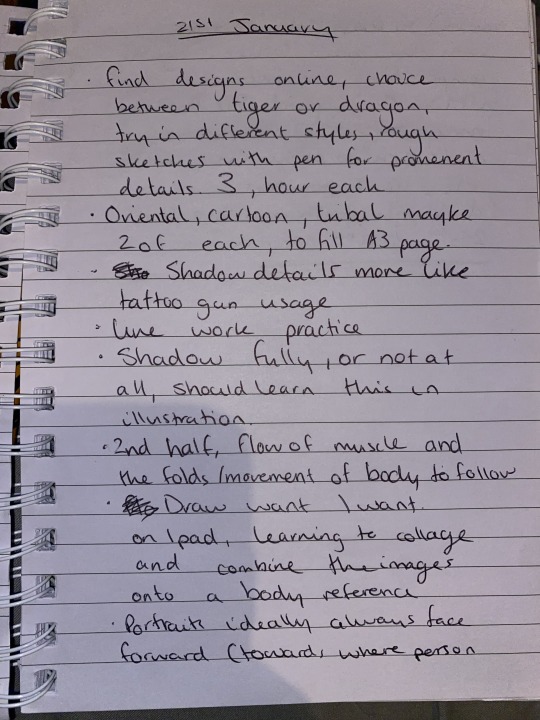 21st January
· find designs online, chouce
between tiger or dragon,
try in different styles, rough
sketches with pen for promenent
details. 3, hour each
· Oriental, cartoon, tribal mayke
2 of each, to fill A3 page.
· Shadow details more like
tattoo gun usage
· line work practice
· Shadow fully, or not at
all, should learn this in
illustration.
· 2nd half, flow of muscle and
the folds/movement of body to follow
· Draw want I want.
on Ipad, learning to collage
and combine the images
onto a body reference
· Portraits ideally always face
forward (toward, where person